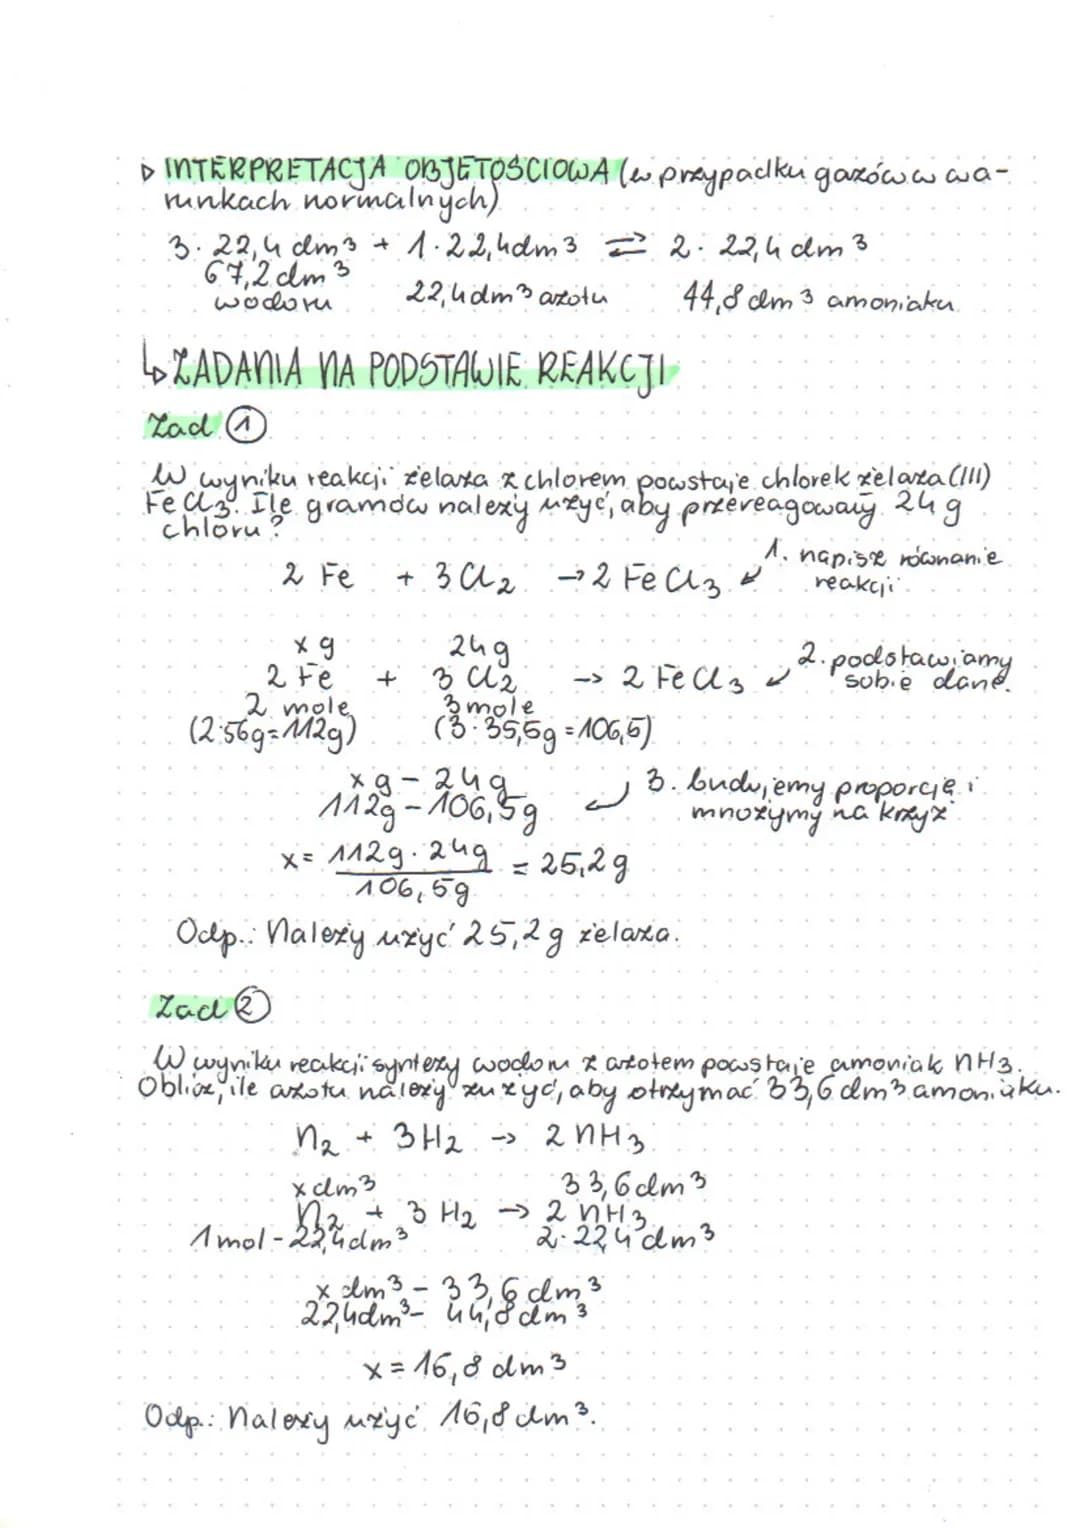 ▷ INTERPRETACJA OBJĘTOŚCIOWA (w przypadku gazów w wa-
runkach normalnych)
3 · 22,4 dm³ + 1 · 22,4 dm³ ⇌ 2 · 22,4 dm³
67,2 dm³
wodoru 22,4 dm³ azotu 44,8 dm³ amoniaku
↳ ZADANIA NA PODSTAWIE REAKCJI
Zad ①
W wyniku reakcji żelaza z chlorem powstaje chlorek żelaza (III)
FeCl₃. Ile gramów należy użyć, aby przereagowały 24 g
chloru?
2 Fe + 3 Cl₂ → 2 FeCl₃ ↙ 1. napisz równanie
reakcji
x g 24 g
2 Fe + 3 Cl₂ → 2 FeCl₃ ↙ 2. podstawiamy
sobie dane.
2 mole 3 mole
(2·56g=112g) (3·35,5g=106,5)
x g – 24 g
112g – 106,5g ↙ 3. budujemy proporcję i
mnożymy na krzyż
x = 112g · 24g / 106,5g = 25,2 g
Odp.: Należy użyć 25,2 g żelaza.
Zad ②
W wyniku reakcji syntezy wodoru z azotem powstaje amoniak NH₃.
Oblicz, ile azotu należy zużyć, aby otrzymać 33,6 dm³ amoniaku.
N₂ + 3H₂ → 2 NH₃
x dm³ 33,6 dm³
N₂ + 3 H₂ → 2 NH₃
1 mol - 22,4 dm³ 2·22,4 dm³
x dm³ – 33,6 dm³
22,4dm³ – 44,8 dm³
x = 16,8 dm³
Odp.: Należy użyć 16,8 dm³.